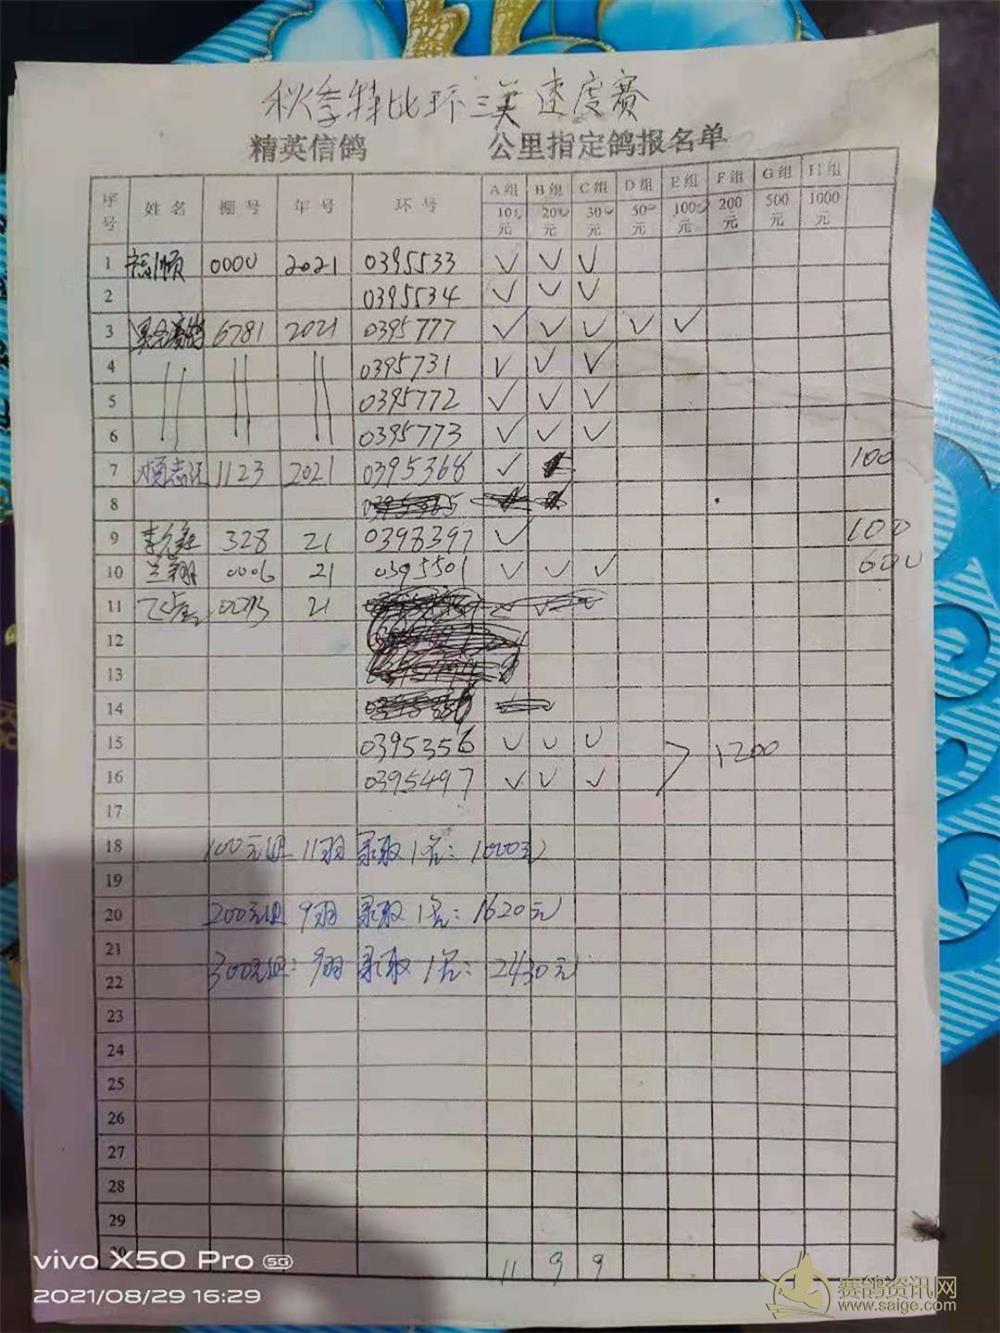 秋季特比环三关速度赛
精英信鸽 公里指定鸽报名单
序号 姓名 棚号 年号 环号 A组 100元 B组 200元 C组 300元 D组 500元 E组 1000元 F组 200元 G组 500元 H组 1000元
1 福顺 0000 2021 0395533 ✓ ✓ ✓
2 0395534 ✓ ✓ ✓
3 6781 2021 0395777 ✓ ✓ ✓ ✓ ✓
4 〃 〃 〃 0395731 ✓ ✓ ✓
5 0395772 ✓ ✓ ✓
6 0395773 ✓ ✓ ✓
7 1123 2021 0395368 ✓ 100
8
9 328 21 0398397 ✓ 100
10 兰翔 0006 21 0395501 ✓ ✓ ✓ 600
11 21
12
13
14
15 0395356 ✓ ✓ ✓ 1200
16 0395497 ✓ ✓ ✓
17
18 100元组 11羽 录取1名: 1000元
19
20 200元组 9羽 录取1名: 1620元
21
22 300元组: 9羽 录取1名: 2430元
23
24
25
26
27
28
29
30 11 9 9
vivo X50 Pro 5G
2021/08/29 16:29
赛鸽资讯网
www.saige.com